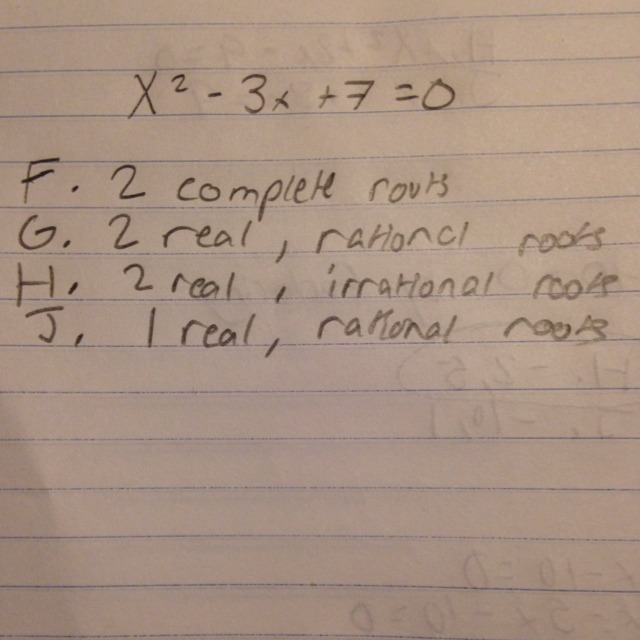 x² - 3x + 7 = 0
F. 2 complete roots
G. 2 real, rational roots
H. 2 real, irrational roots
J. 1 real, rational roots